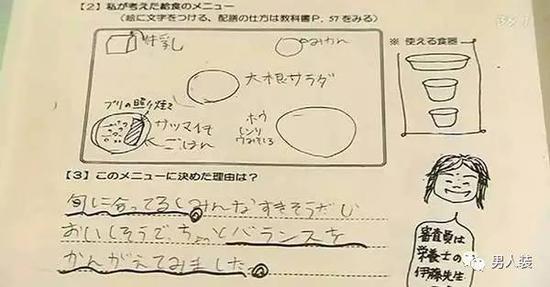 【2】私が考えた給食のメニュー
(絵に文字をつける、配膳の仕方は教科書P.57をみる)
牛乳
みかん
※ 使える食器
大根サラダ
ブリの照り焼き
サツマイモ
ごはん
ホウ
レンソウ
【3】このメニューに決めた理由は?
旬に合ってるしみんなすきそうだし
おいしそうで、ちゃんとバランスを
かんがえてみました。
審査員は
栄養士の
伊藤先生
男人装